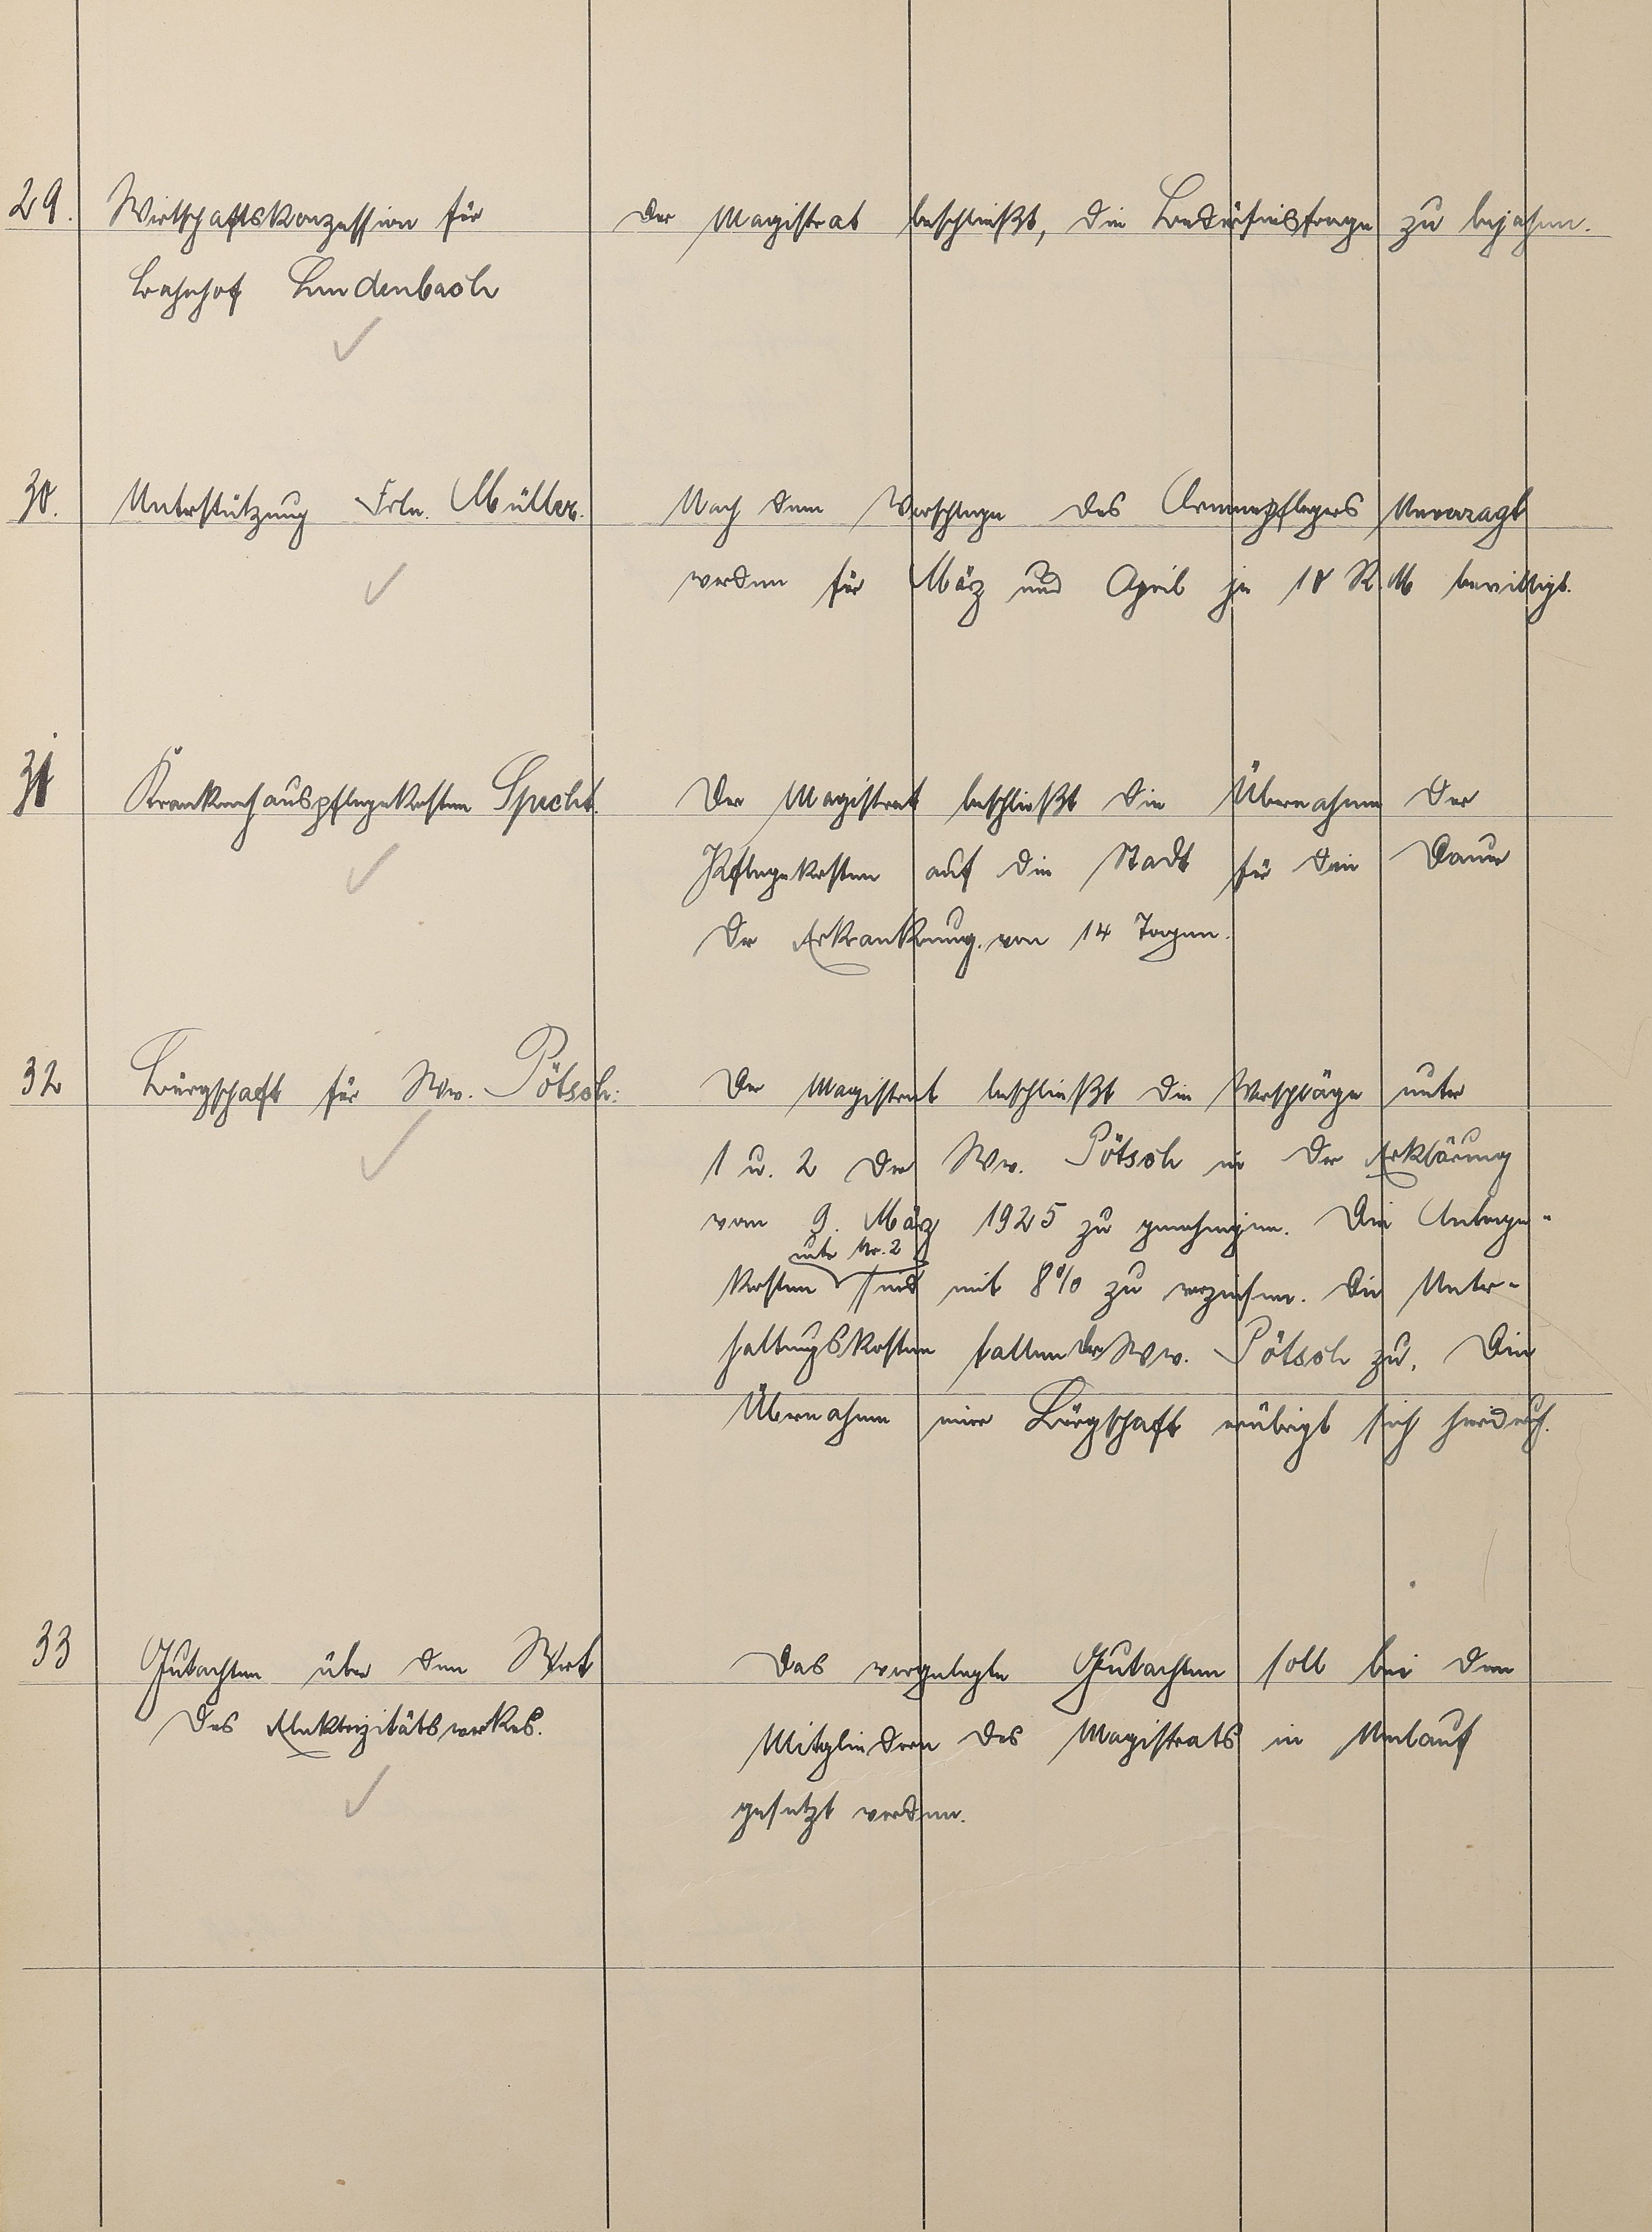 29.
Wirtschaftskonzession für
Bahnhof Lindenbach
Der Magistrat beschließt, die Bedürfnisfrage zu bejahen.
30.
Unterstützung Frln. Müller.
Nach dem Vorschlage des Armenpflegers Unverzagt
werden für März und April je 10 R.M bewilligt.
31
Krankenhauspflegekosten Specht.
Der Magistrat beschließt die Übernahme der
Pflegekosten auf die Stadt für die Dauer
der Erkrankung von 14 Tagen.
32
Bürgschaft für Ww. Pötsch.
Der Magistrat beschließt die Vorschläge unter
1 u. 2 der Ww. Pötsch in der Erklärung
vom 9. März 1925 zu genehmigen. Die Anlage-
unter Nr. 2
kosten sind mit 8% zu verzinsen. Die Unter-
haltungskosten fallen der Ww. Pötsch zu. Die
Übernahme einer Bürgschaft erübrigt sich hierdurch.
33
Gutachten über den Wert
des Elektrizitätswerkes.
Das vorgelegte Gutachten soll bei den
Mitgliedern des Magistrats in Umlauf
gesetzt werden.